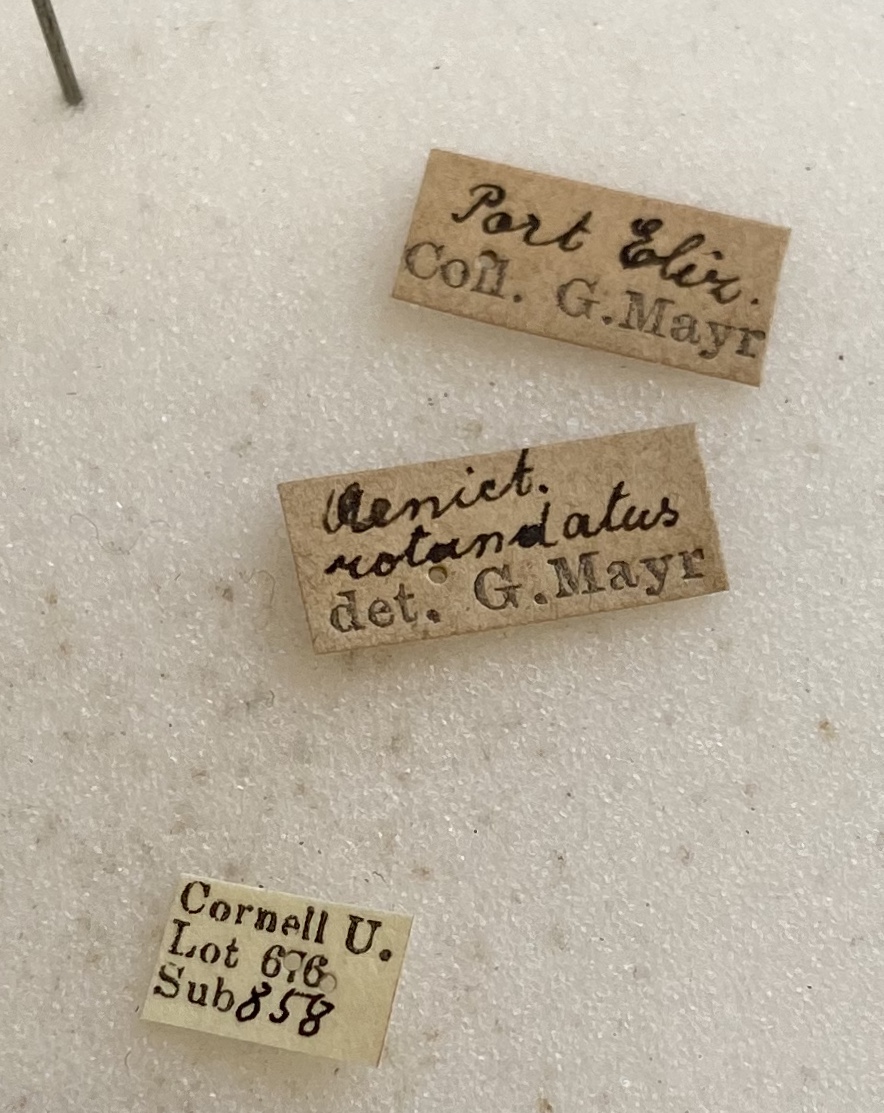 Port Eliz.
Coll. G.Mayr
Aenict.
rotundatus
det. G.Mayr
Cornell U.
Lot 676
Sub 858